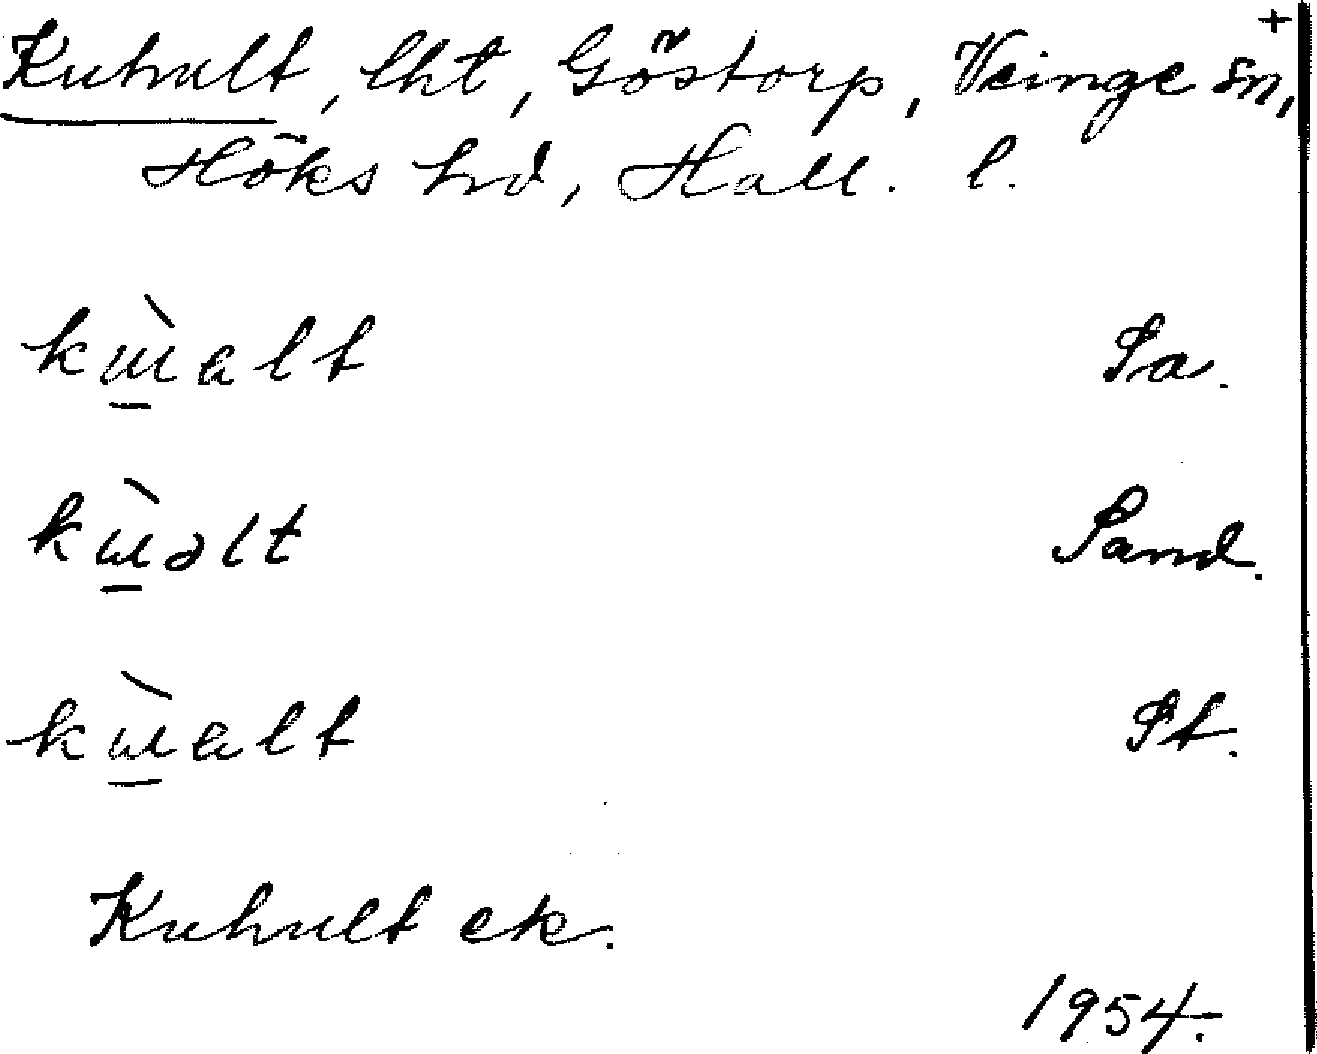 +
Kuhult, lht, Göstorp, Veinge sn,
Höks hd, Hall. l.
kɯ̱̀alt Sa.
kɯ̱̀əlt Sand.
kɯ̱̀alt St.
Kuhult ek.
1954.